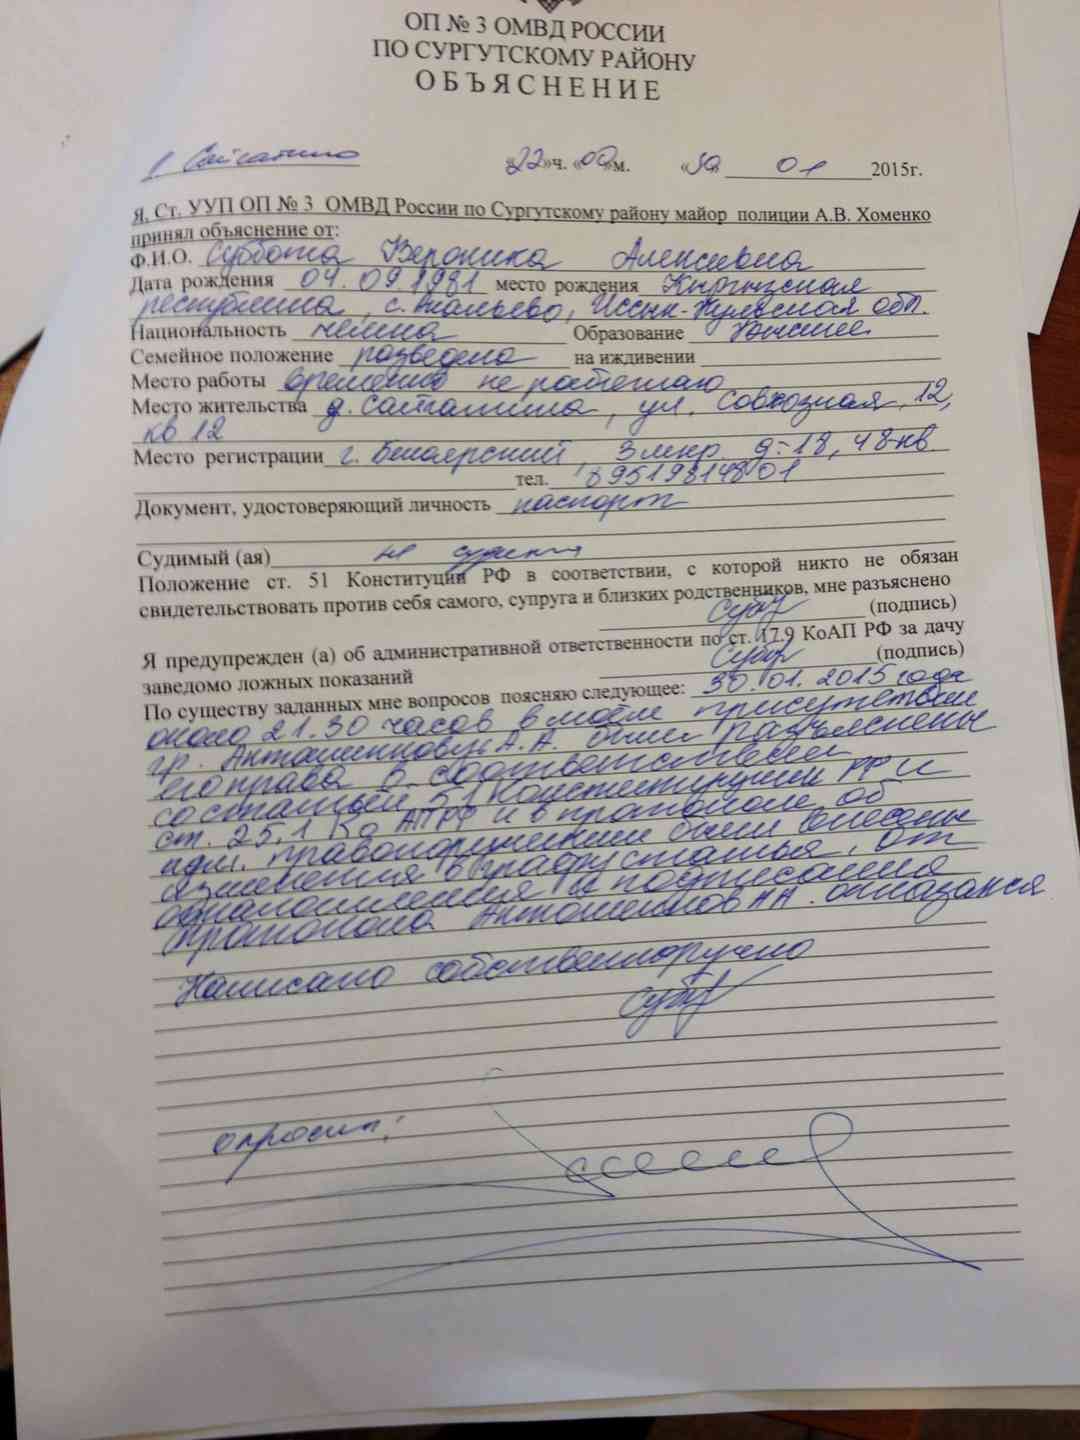 ОП № 3 ОМВД РОССИИ
ПО СУРГУТСКОМУ РАЙОНУ
ОБЪЯСНЕНИЕ
«22»ч. «00»м. «30» 01 2015г.
Я, Ст. УУП ОП № 3 ОМВД России по Сургутскому району майор полиции А.В. Хоменко
принял объяснение от:
Ф.И.О. Суббота Вероника Алексеевна
Дата рождения 04.09.1981 место рождения Кыргызская
республика, с. Ананьево, Иссык-Кульская обл.
Национальность немка Образование высшее
Семейное положение разведена на иждивении
Место работы временно не работаю
Место жительства д. Сайгатина, ул. Совхозная, 12,
кв 12
Место регистрации г. Белоярский, 3 мкр. д-18, 48-кв.
тел. 89519814801
Документ, удостоверяющий личность паспорт
Судимый (ая) не судима
Положение ст. 51 Конституции РФ в соответствии, с которой никто не обязан
свидетельствовать против себя самого, супруга и близких родственников, мне разъяснено
(подпись)
Я предупрежден (а) об административной ответственности по ст. 17.9 КоАП РФ за дачу
заведомо ложных показаний (подпись)
По существу заданных мне вопросов поясняю следующее: 30.01.2015 года
около 21.30 часов в моем присутствии
гр. А.А. были разъяснены
его права в соответствии
со статьей 51 Конституции РФ и
ст. 25.1 Ко АП РФ и в протоколе об
адм. правонарушении были внесены
изменения в графу статья, от
ознакомления и подписания
протокола АА. отказался
Написано собственноручно
опросил: